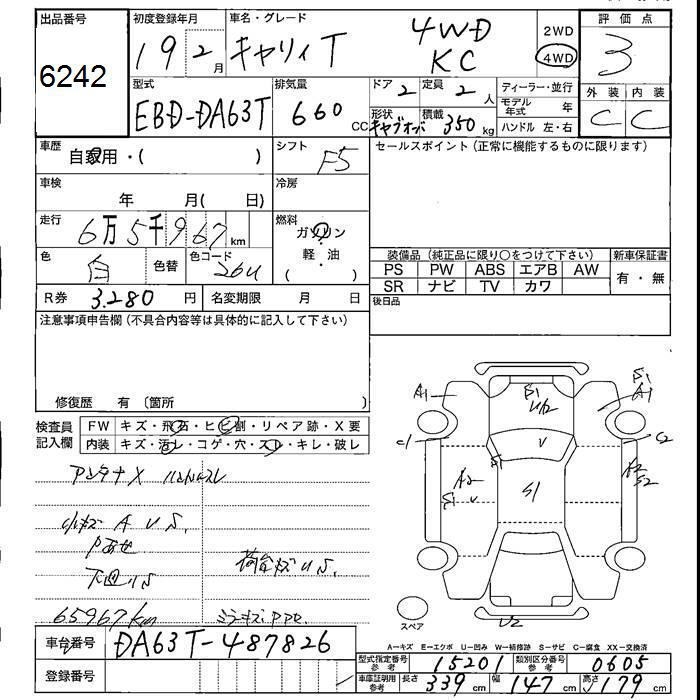 出品番号
6242
初度登録年月
19 2月
車名・グレード
キャリィT
4WD
KC
2WD
4WD
評価点
3
型式
EBD-DA63T
排気量
660 CC
ドア 2
定員 2人
形状 キャブオーバ
積載 350kg
ディーラー・並行
モデル年式 年
ハンドル 左・右
外装 内装
C C
車歴
自家用・( )
シフト
F5
セールスポイント(正常に機能するものに限ります)
車検
年 月( 日)
冷房
走行
6万5千967km
燃料
ガソリン
軽・油
( )
色
白
色替
色コード
26U
装備品(純正品に限り○をつけて下さい)
新車保証書
PS PW ABS エアB AW
SR ナビ TV カワ
有・無
R券 3,280円
名変期限 月 日
後日品
注意事項申告欄(不具合内容等は具体的に記入して下さい)
修復歴 有(箇所 )
検査員記入欄
FW キズ・飛石・ヒビ割・リペア跡・X要
内装 キズ・汚レ・コゲ・穴・スレ・キレ・破レ
アンテナX ハンドルスレ
小キズ A U S.
色あせ
下回りS
荷台キズ U S.
65967km
A1
S1
U2
S1
A1
C1
C2
U
S1
A2
S1 U
S1
A2
S2
U2
スペア
車台番号
DA63T-487826
登録番号
A-キズ E-エクボ U-凹み W-補修跡 S-サビ C-腐食 XX-交換済
型式指定番号 参考 15201
類別区分番号 参考 0605
車庫証明用 参考 長さ 339cm 幅 147cm 高さ 179cm